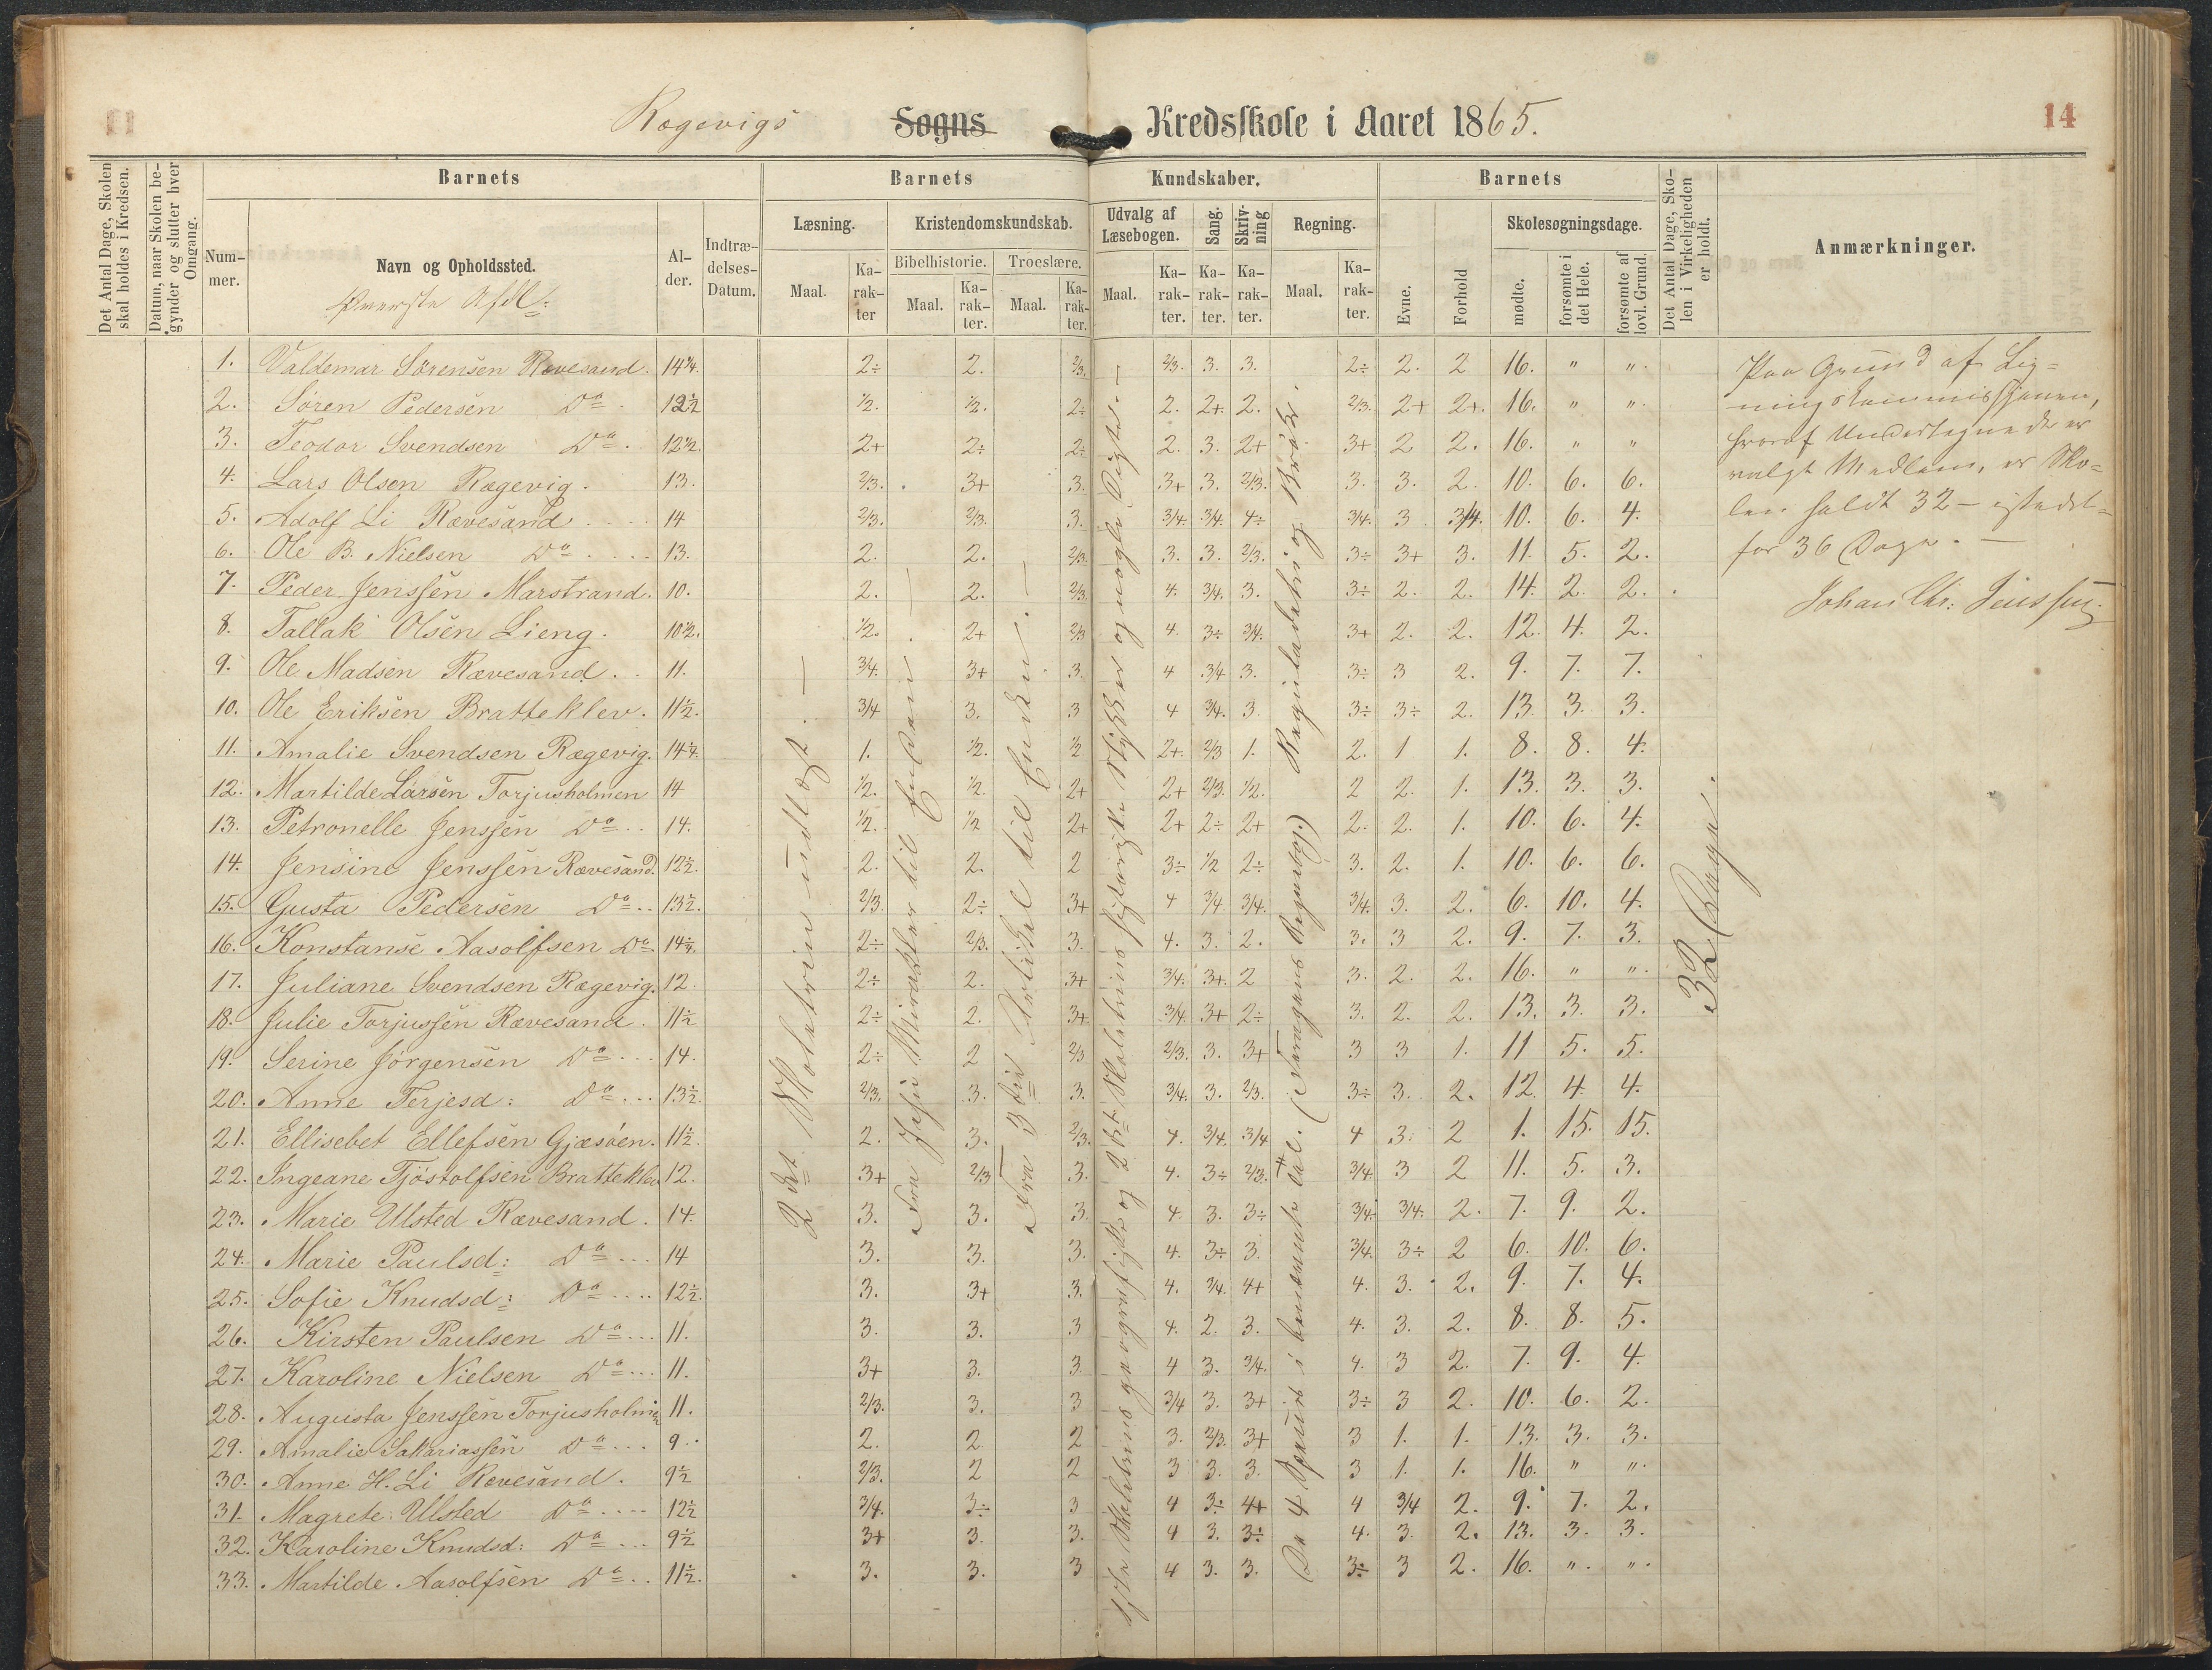 Rægevigs Sogns Kredsskole i Aaret 1865.
14
Det Antal Dage, Skolen skal holdes i Kredsen.
Datum, naar Skolen begynder og slutter hver Omgang.
Barnets
Barnets
Kundskaber.
Barnets
Det Antal Dage, Skolen i Virkeligheden er holdt.
Anmærkninger.
Nummer.
Navn og Opholdssted.
Øverste Afdl:
Alder.
Indtrædelses-Datum.
Læsning.
Kristendomskundskab.
Bibelhistorie.
Troeslære.
Udvalg af Læsebogen.
Sang.
Skrivning
Regning.
Evne.
Forhold
Skolesøgningsdage.
mødte.
forsømte i det Hele.
forsømte af lovl. Grund.
Maal.
Karakter
Maal.
Karakter.
Maal.
Karakter.
Maal.
Karakter.
Karakter.
Karakter.
Maal.
Karakter.
1. Valdemar Sørensen Rævesand. 14¼. 2÷ 2. 2/3. 2/3. 3. 3. 2÷ 2. 2 16. " "
2. Søren Pedersen Do. 12½ ½. ½. 2÷ 2. 2+. 2. 2/3. 2+ 2+. 16. " "
3. Teodor Svendsen Do. 12½. 2+ 2÷ 2÷ 2. 3. 2+ 3+ 2 2. 16. " "
4. Lars Olsen Rægevig. 13. 2/3. 3+ 3. 3+ 3. 2/3. 3. 3. 2. 10. 6. 6.
5. Adolf Li Rævesand 14 2/3. 2/3. 3. 3/4. 3/4. 4÷ 3/4. 3 3/4. 10. 6. 4.
6. Ole B. Nielsen Do 13. 2. 2. 2/3. 3. 3. 2/3. 3÷ 3+ 3. 11. 5. 2.
7. Peder Jenssen Marstrand. 10. 2. 2. 2/3. 4. 3/4. 3. 3÷ 2. 2. 14. 2. 2.
8. Tallak Olsen Lieng. 10½. ½. 2+ 2/3 4. 3÷ 3/4. 3+ 2. 2. 12. 4. 2.
9. Ole Madsen Rævesand. 11. 3/4. 3+ 3. 4 3/4 3. 3÷ 3 2. 9. 7. 7.
10. Ole Eriksen Bratteklev. 11½. 3/4 3. 3 4 3/4. 3. 3÷ 3÷ 2. 13. 3. 3.
11. Amalie Svendsen Rægevig. 14¼. 1. ½. ½ 2+. 2/3 1. 2. 1 1. 8. 8. 4.
12. Martilde Larsen Torjusholmen 14 ½. ½. 2+ 2+ 2/3. ½. 2 2. 1. 13. 3. 3.
13. Petronelle Jenssen Do 14. ½. ½ 2+ 2+ 2÷ 2+ 2. 2. 1. 10. 6. 4.
14. Jensine Jenssen Rævesand. 12½. 2. 2. 2 3÷ ½ 2÷ 3. 2. 1. 10. 6. 6.
15. Gusta Pedersen Do 13½. 2/3. 2÷ 3+ 4 3/4. 3/4. 3/4. 3. 2. 6. 10. 4.
16. Konstanse Aasolfsen Do 14¼. 2÷ 2/3. 3. 4. 3. 2. 3. 3 2. 9. 7. 3.
17. Juliane Svendsen Rægevig. 12. 2÷ 2. 3+ 3/4. 3+. 2 3. 2. 2. 16. " "
18. Julie Torjussen Rævesand. 11½ 2÷ 2. 3+ 3/4. 3+ 2÷ 3. 2. 2. 13. 3. 3.
19. Serine Jørgensen Do 14. 2÷ 2 2/3 2/3. 3. 3+ 3 3 1. 11 5. 5.
20. Anne Terjesd: Do 13½. 2/3. 3. 3. 3/4. 3. 2/3. 3÷ 3. 2. 12. 4. 4.
21. Ellisebet Ellefsen Gjæsøen. 11½. 2. 3. 2/3. 4. 3/4. 3/4 4 3. 2 1. 15. 15.
22. Ingeane Tjøstolfsen Bratteklev 12. 3+ 2/3 3. 4. 3÷ 2/3. 3/4. 3 2 11. 5. 3.
23. Marie Ulsted Rævesand. 14. 3. 3. 3. 4. 3. 3÷ 3/4. 3/4. 2. 7. 9. 2.
24. Marie Paulsd: Do 14 3. 3. 3. 4. 3÷ 3. 3/4. 3÷ 2 6. 10. 6.
25. Sofie Knudsd: Do 12½. 3. 3+ 3. 4. 3/4. 4+ 4. 3. 2. 9. 7. 4.
26. Kirsten Paulsen Do 11. 3. 3. 3 4. 2. 3. 4. 3. 2. 8. 8. 5.
27. Karoline Nielsen Do 11. 3+ 3. 3. 4 3. 3/4. 4. 3 2. 7. 9. 4.
28. Augusta Jenssen Torjusholmen 11. 2/3. 3. 3 3/4 3. 3+ 3÷ 3 2. 10. 6. 2.
29. Amalie Sakariassen Do 9. 2. 2. 2 3. 2/3. 3+ 3 1. 1. 13. 3. 3.
30. Anne H. Li Rævesand. 9½ 2/3. 2 2 3 3. 3. 3 1. 1. 16. " "
31. Magrete Ulsted Do 12½ 3/4. 3÷ 3 4 3÷ 4+ 4 3/4 2. 9. 7. 2.
32. Karoline Knudsd: Do 9½ 3+ 3. 3. 4 3. 3÷ 4. 3. 2. 13. 3. 3.
33. Martilde Aasolfsen Do 11½. 3. 3. 3 4 3. 3. 3÷ 3 2. 16. " "
2det Skoletrin udlagt. —
Fra Jesu Mirakler til Endeni —
Fra 3die Artikel til Enden. —
1ste Skoletrins geografiske og 2det Skoletrins historiske Stykker og nogle Digte. —
De 4 Species i benævnte Tal. (Faragens Regnebog.) Reguladetri og Brøk.
32 Dage.
Paa Grund af Lig-
ningskommissjonen,
hvoraf Undertegnede er
valgt Medlem, er Sko-
len holdt 32 – istedet-
for 36 Dage. —
Johan Chr: Jenssen.